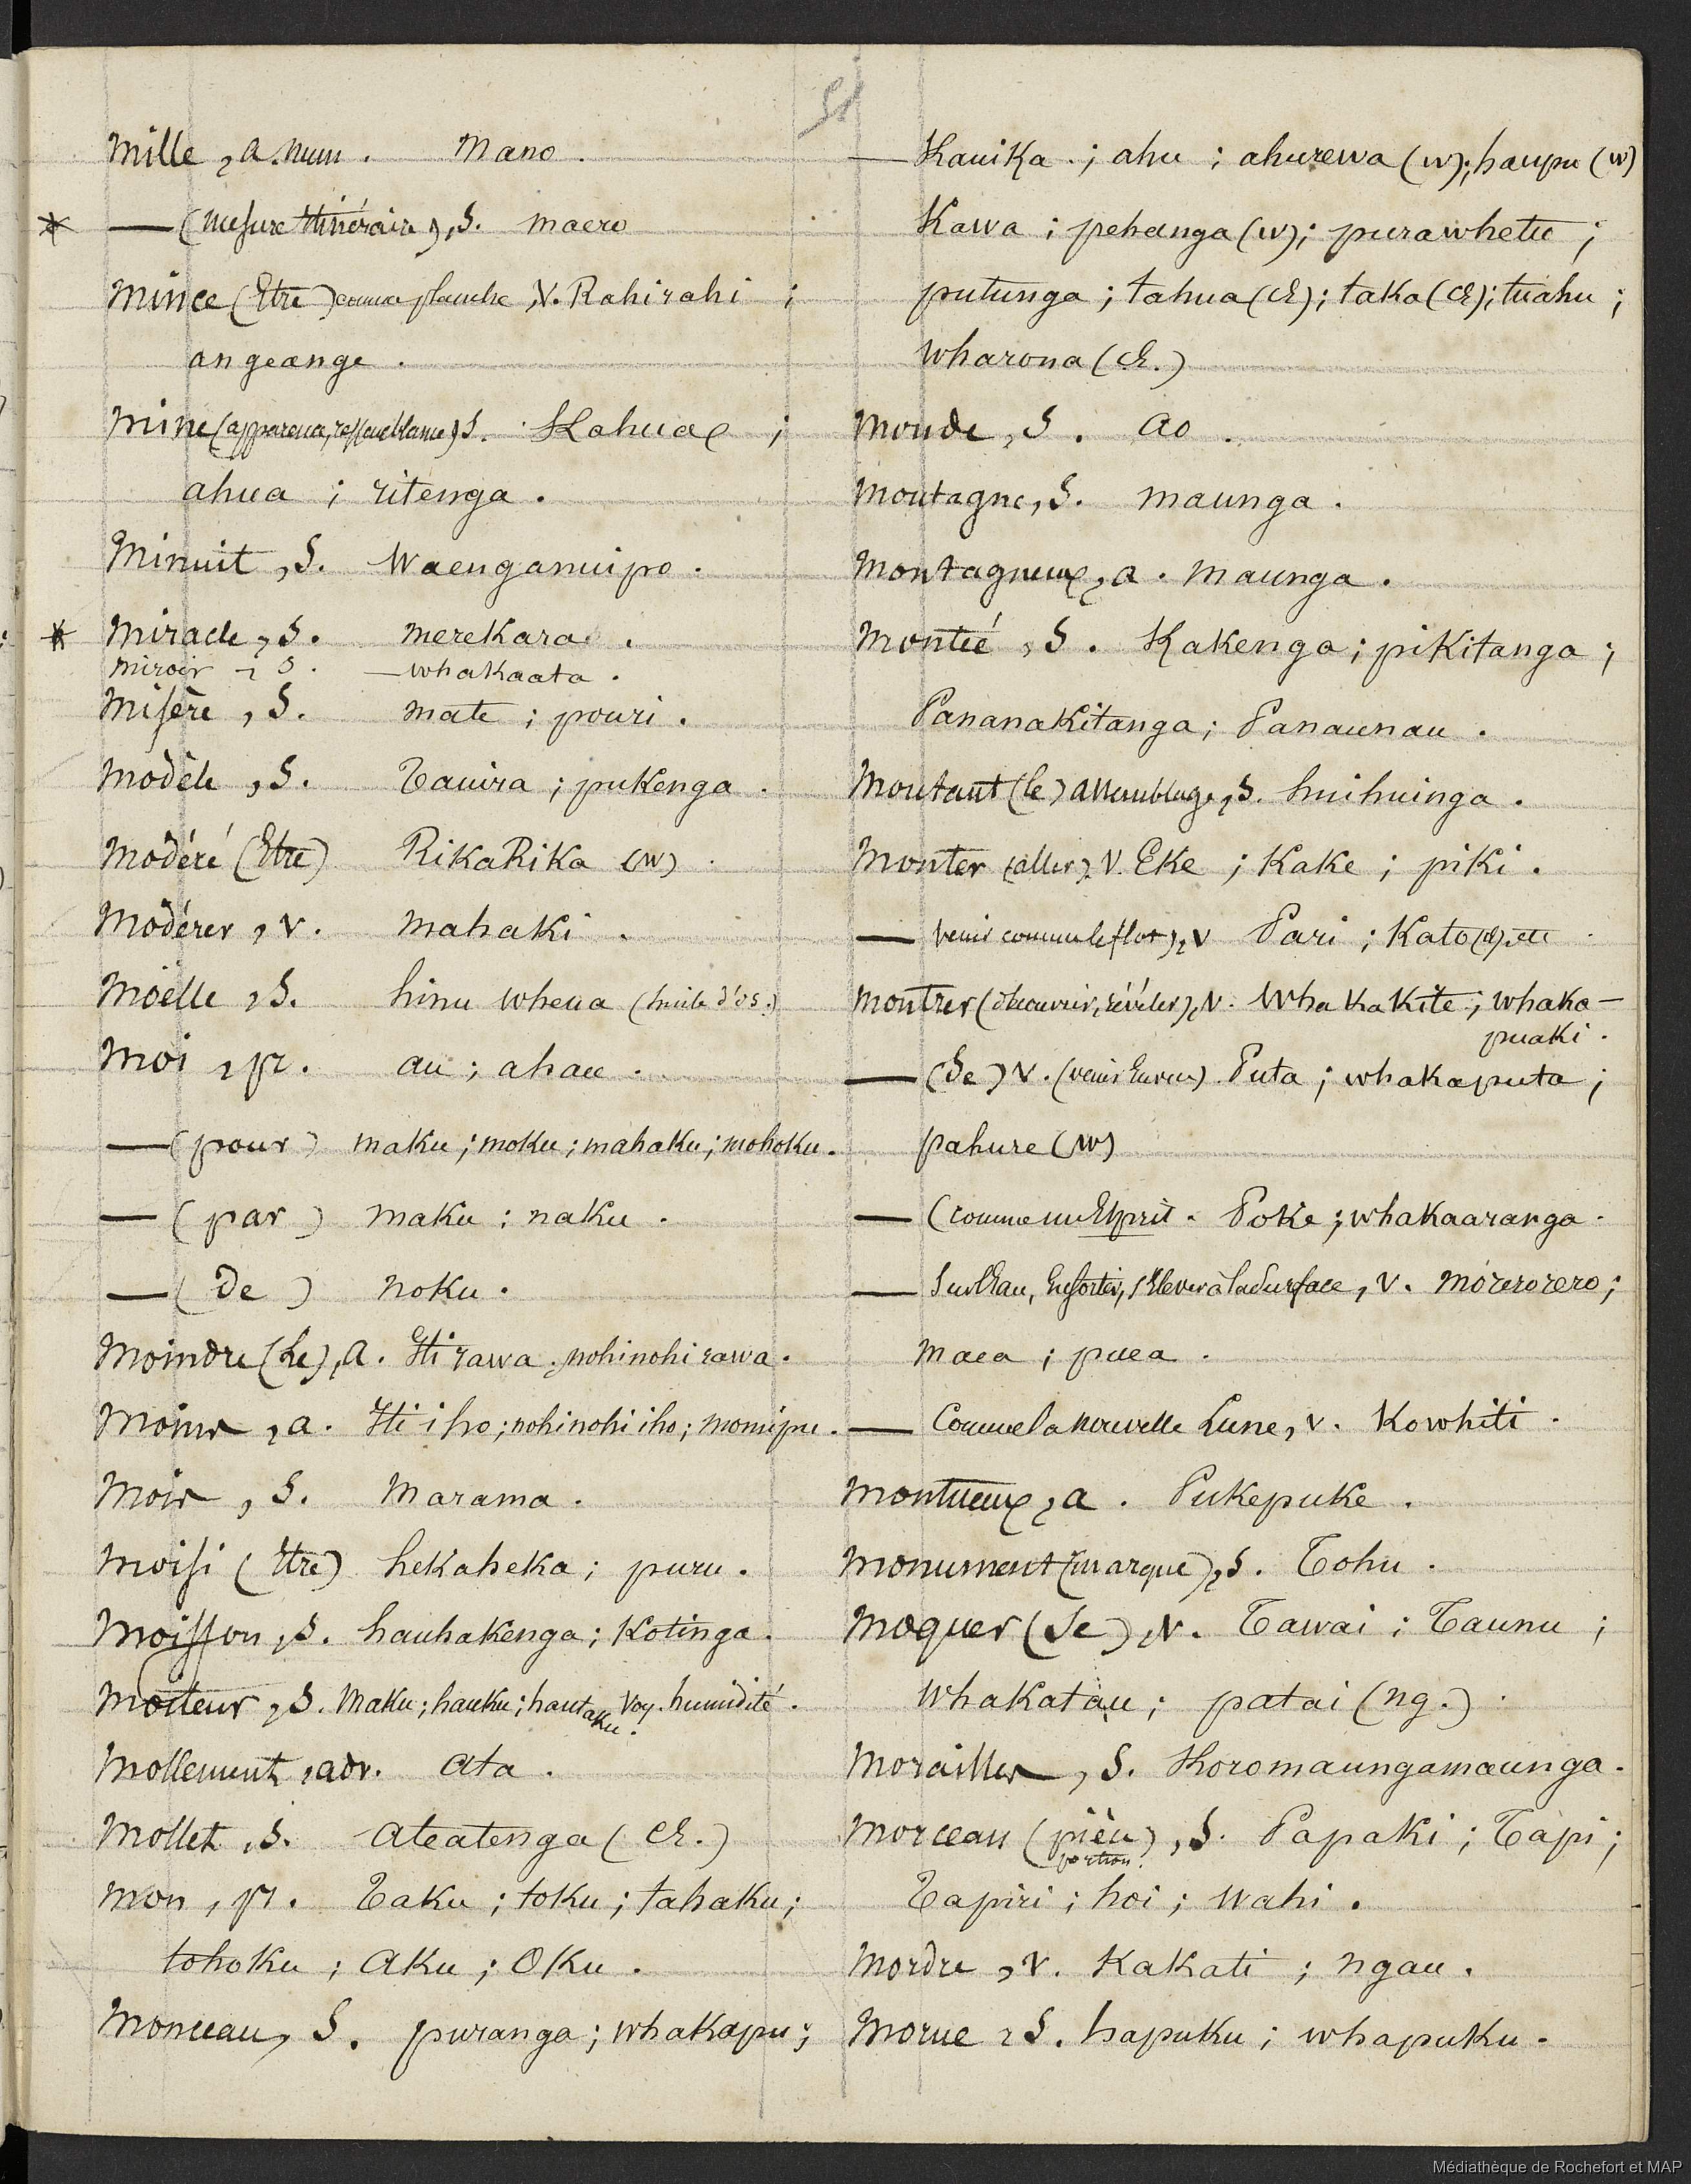 51
Mille, a. num. Mano.
* — (mesure itinéraire), S. maero
Mince (Etre) comme planche, V. Rahirahi ;
angeange.
Mine (apparence, ressemblance) S. Kahua ;
ahua ; ritenga.
Minuit, S. Waenganuipo.
* Miracle, S. merekara.
Miroir, S. — whakaata.
Misère, S. mate ; pouri.
Modèle, S. Tauira ; pukenga.
Modéré (Etre) RikaRika (W).
Modérer, v. mahaki.
Moëlle, S. hinu wheua (huile d'os.)
Moi, pr. au ; ahau.
— (pour) maku ; moku ; mahaku ; mohoku.
— (par) maku ; naku.
— (de) noku.
Moindre (Le), a. Iti rawa ; nohinohi rawa.
Moins, a. Iti iho ; nohinohi iho ; momipu.
Mois, S. Marama.
Moisi (Etre) hekaheka ; puru.
Moisson, S. hauhakenga ; Kotinga.
Moiteur, S. Maku ; hauku ; hautaku. Voy. humidité.
Mollement, adv. ata.
Mollet, S. ateatenga (Ch.)
Mon, pr. Taku ; toku ; tahaku ;
tohoku ; aku ; oku.
Monceau, S. puranga ; whakapu ;
— Kauika ; ahu ; ahurewa (w) ; haupu (w)
Kawa ; pehanga (w) ; purawhetu ;
putunga ; tahua (Ch) ; taka (Ch) ; tuahu ;
wharona (Ch.)
Monde, S. ao.
Montagne, S. maunga.
Montagneux, a. maunga.
Monteé, S. Kakenga ; pikitanga ;
Pananakitanga ; Panaunau.
Montant (le) assemblage, S. huihuinga.
Monter (aller) V. Eke ; Kake ; piki.
— venir comme le flot), v Pari ; Kato
Montrer (découvrir, révéler), v. Whakakite ; whaka-
puaki.
— (Se) V. (venir En vue). Puta ; whakaputa ;
pahure (W)
— (comme un Esprit. Poke ; whakaaranga.
— Sur l'Eau, En sortir, s'Elever à la surface, v. mórerorero ;
maea ; puea.
— Comme la nouvelle Lune, v. Kowhiti.
Montueux, a. Pukepuke.
Monument (marque), S. Tohu.
Moquer (Se), v. Tawai ; Taunu ;
whakatau ; patai (ng.).
Morailles, S. Koromaungamaunga.
Morceau (pièce), S. Papaki ; Tapi ;
portion.
Tapiri ; hoi ; wahi.
Mordre, v. Kakati ; ngau.
Morue, S. hapuku ; whapuku.
Médiathèque de Rochefort et MAP